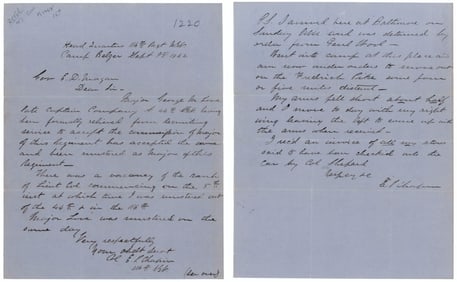 1220
Head Quarters 116th Regt
Camp Belger Sept 8th 1862
Gov E. D. Morgan
Dear Sir
Major George M. Love
late Captain Company
been formally relieved from recruiting
service to accept the commission of Major
of this Regiment has accepted the same
and been mustered as Major of this
Regiment
There was a vacancy of the rank
of Lieut Col commencing on the 5th
inst at which time I was mustered out
of the 44th & in the 116th
Major Love was mustered on the
same day
Very respectfully
Your obdt Servt
Col E P Chapin
116th
(see over)
P.S. I arrived here at Baltimore on
Sunday and was detained by
order from Genl Wool
Went into camp at this place and
am now under orders to move out
on the Frederick Pike some four
or five miles distant
My arms fell short about half
and I move to day with my right
wing leaving the left to come up when
the arms are received
I recd an invoice of all my stores
said to have been checked into the
cars by Col Shepard
E P Chapin